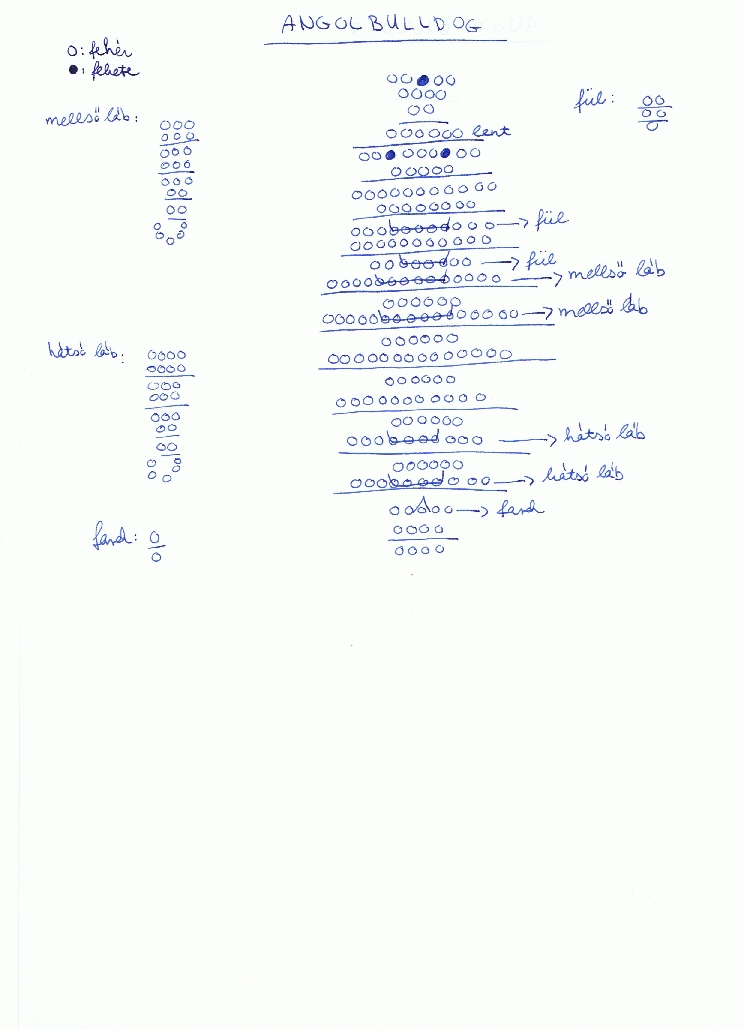 ANGOLBULLDOG
O: fehér
●: fekete
mellső láb:
fül:
lent
→ fül
→ fül
→ mellső láb
→ mellső láb
hátsó láb:
→ hátsó láb
→ hátsó láb
→ farok
farok: